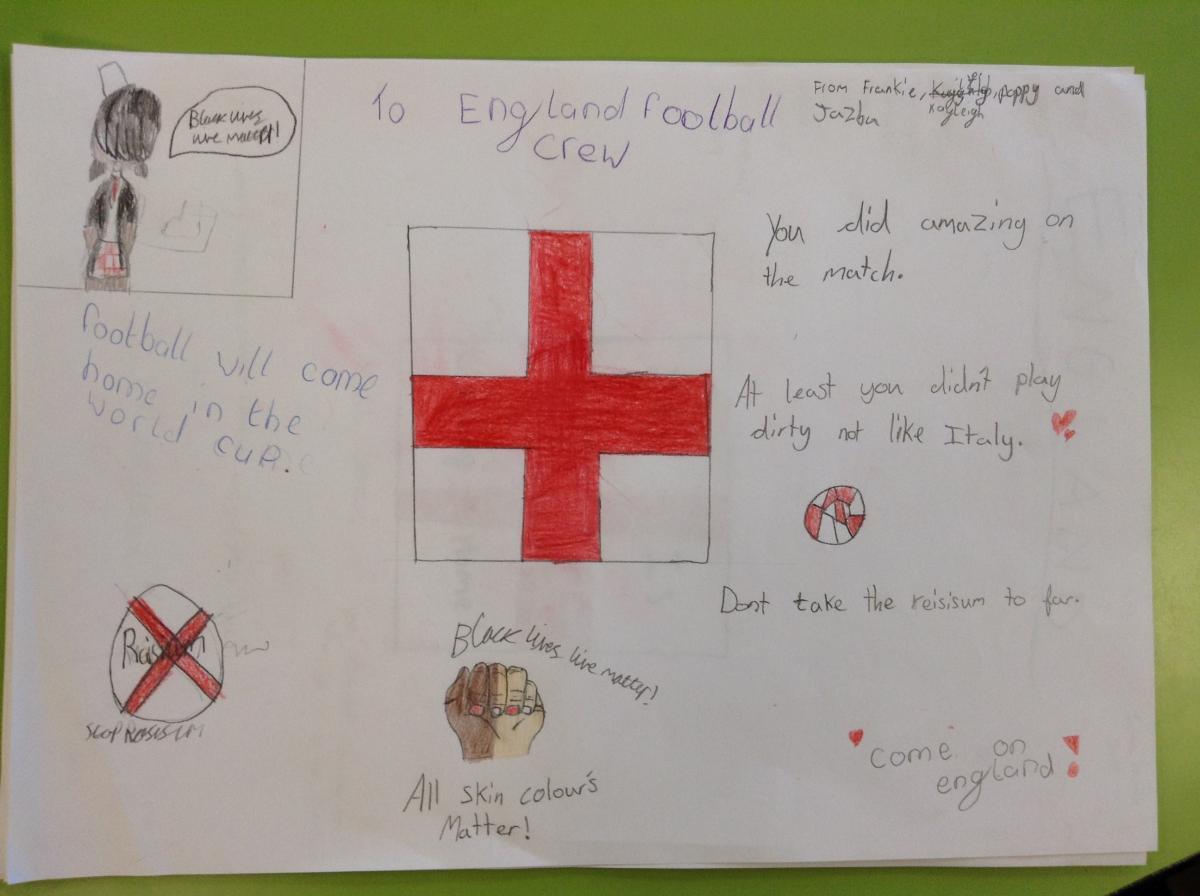 To England football
crew
From Frankie, poppy and
Kayleigh
Jazba
Black lives
live matter!
You did amazing on
the match.
football will come
home in the
world cup.
At least you didn't play
dirty not like Italy.
Dont take the reisisum to far.
Black lives live matter!
STOP RASISUM
All skin colour's
Matter!
come on
england!